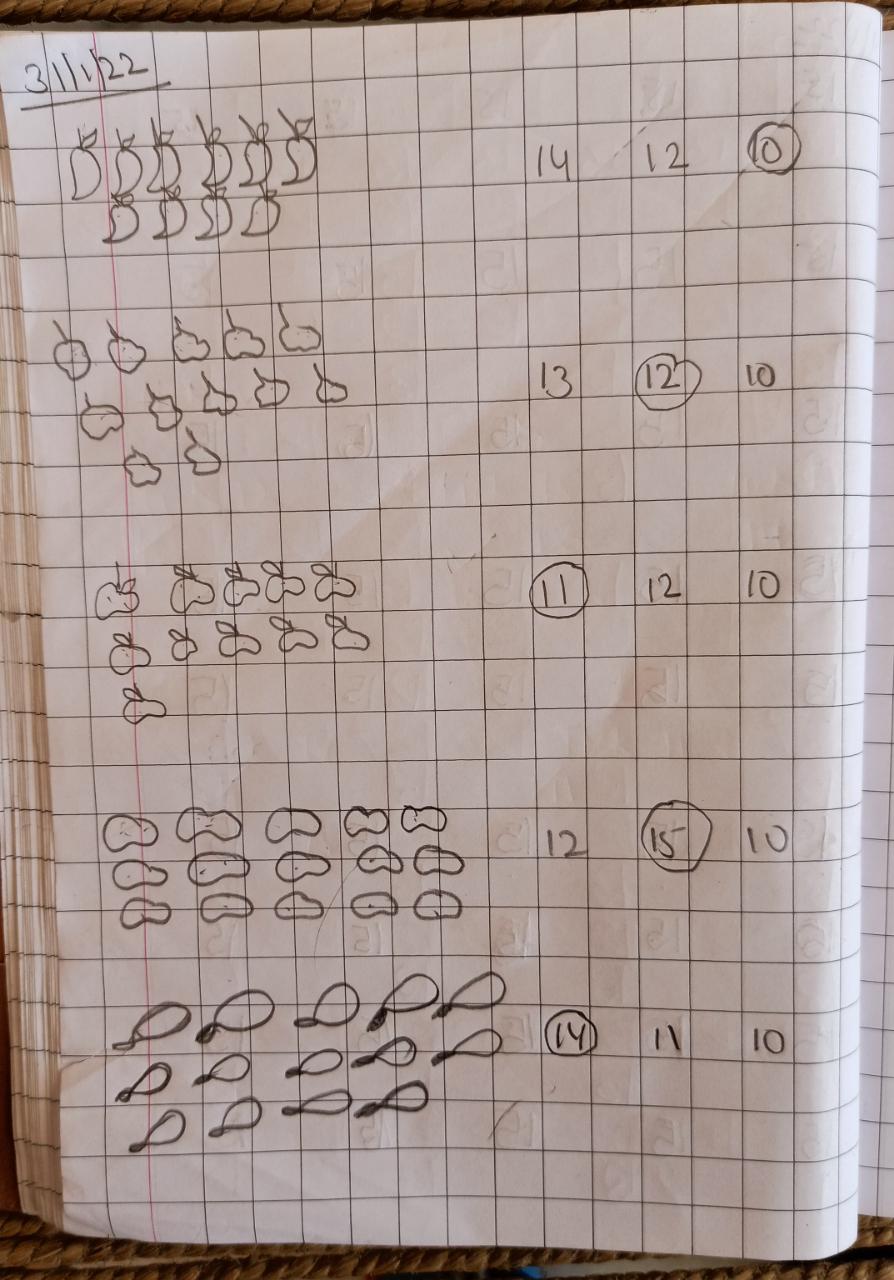 31/1/22
14 12 10
13 12 10
11 12 10
12 15 10
14 11 10